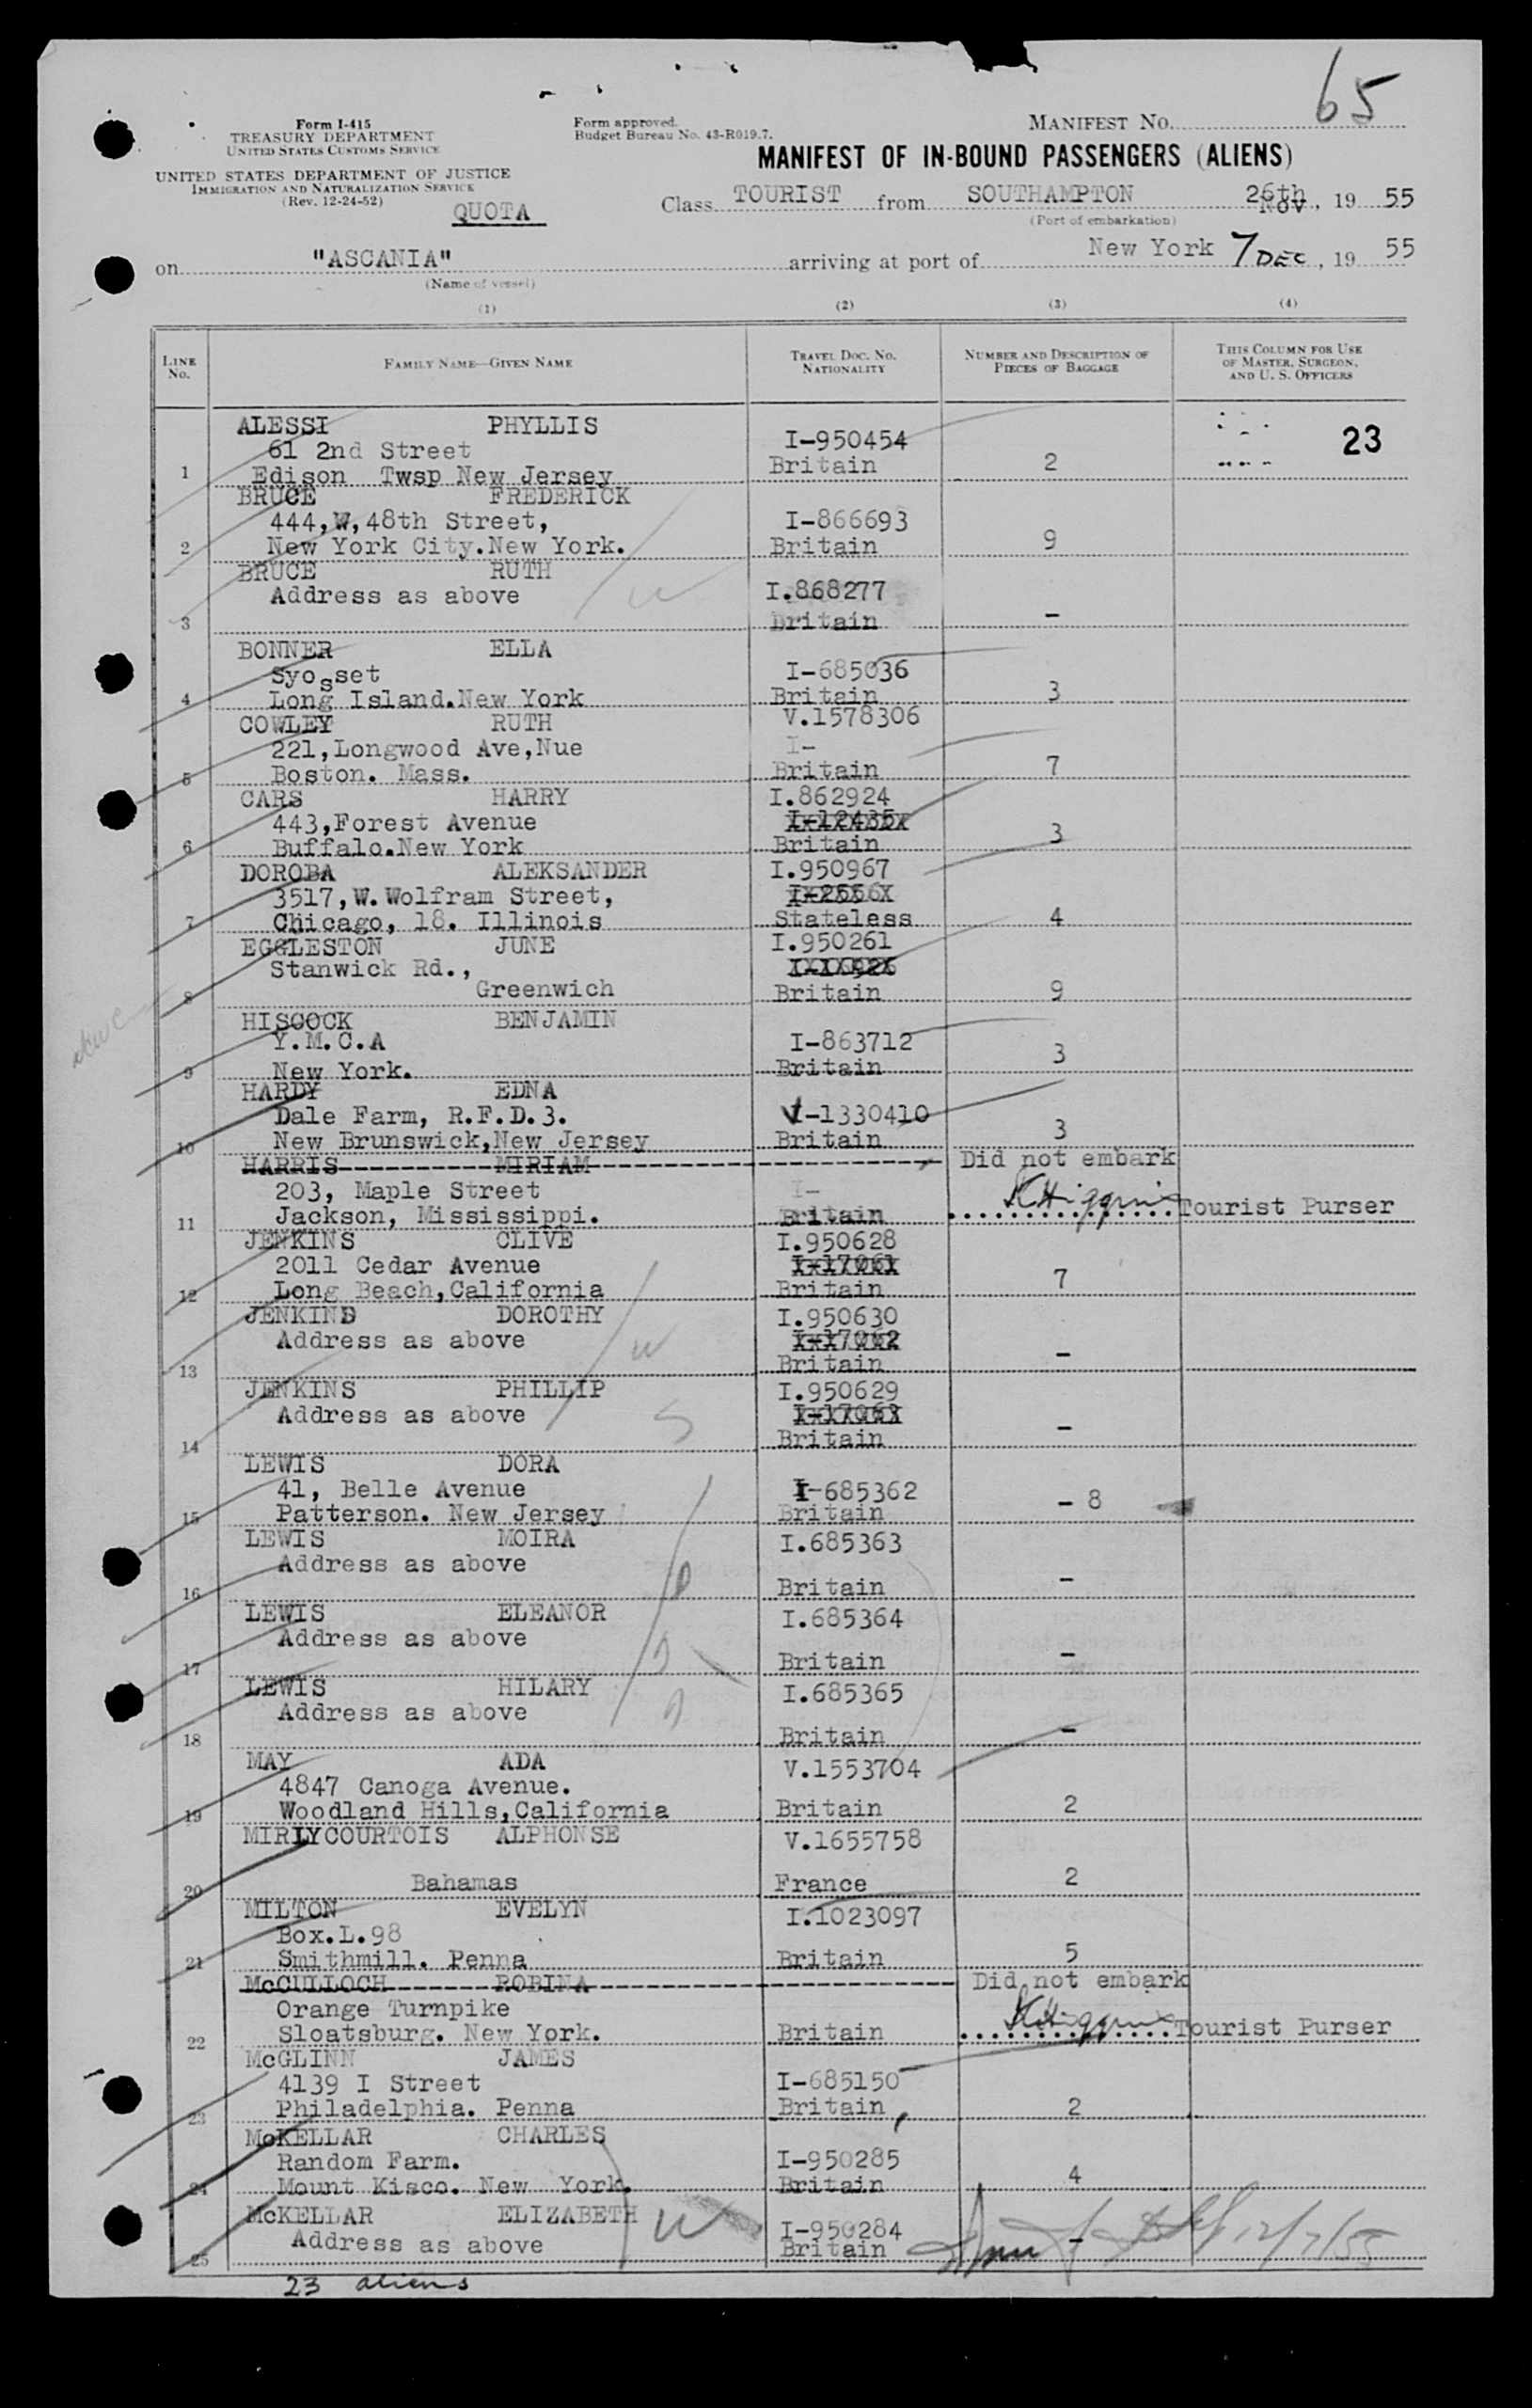 65
Form I-415
TREASURY DEPARTMENT
UNITED STATES CUSTOMS SERVICE
UNITED STATES DEPARTMENT OF JUSTICE
IMMIGRATION AND NATURALIZATION SERVICE
(Rev. 12-24-52)
QUOTA
Form approved.
Budget Bureau No. 43-R019.7.
MANIFEST NO.
MANIFEST OF IN-BOUND PASSENGERS (ALIENS)
Class TOURIST from SOUTHAMPTON 26th Nov, 19 55
(Port of embarkation)
on "ASCANIA" arriving at port of New York 7 DEC, 19 55
(Name of vessel)
(1) (2) (3) (4)
LINE No. FAMILY NAME—GIVEN NAME TRAVEL DOC. NO. NATIONALITY NUMBER AND DESCRIPTION OF PIECES OF BAGGAGE THIS COLUMN FOR USE OF MASTER, SURGEON, AND U. S. OFFICERS
ALESSI PHYLLIS
61 2nd Street I-950454 23
1 Edison Twsp New Jersey Britain 2
BRUCE FREDERICK
444,W,48th Street, I-866693
2 New York City.New York. Britain 9
BRUCE RUTH
Address as above I.868277
3 Britain -
BONNER ELLA
Syosset I-685036
4 Long Island.New York Britain 3
COWLEY RUTH V.1578306
221,Longwood Ave,Nue I-
5 Boston. Mass. Britain 7
CARS HARRY I.862924
443,Forest Avenue
6 Buffalo.New York Britain 3
DOROBA ALEKSANDER I.950967
3517,W.Wolfram Street,
7 Chicago, 18. Illinois Stateless 4
EGGLESTON JUNE I.950261
Stanwick Rd.,
8 Greenwich Britain 9
HISCOCK BENJAMIN
Y.M.C.A I-863712
9 New York. Britain 3
HARDY EDNA
Dale Farm, R.F.D.3. V-1330410
10 New Brunswick,New Jersey Britain 3
HARRIS MIRIAM Did not embark
203, Maple Street I-
11 Jackson, Mississippi. Britain KHiggins Tourist Purser
JENKINS CLIVE I.950628
2011 Cedar Avenue I-17061
12 Long Beach,California Britain 7
JENKINS DOROTHY I.950630
Address as above I-17062
13 Britain -
JENKINS PHILLIP I.950629
Address as above I-17063
14 Britain -
LEWIS DORA
41, Belle Avenue I-685362
15 Patterson. New Jersey Britain - 8
LEWIS MOIRA I.685363
Address as above
16 Britain -
LEWIS ELEANOR I.685364
Address as above
17 Britain -
LEWIS HILARY I.685365
Address as above
18 Britain -
MAY ADA V.1553704
4847 Canoga Avenue.
19 Woodland Hills,California Britain 2
MIRLYCOURTOIS ALPHONSE V.1655758
20 Bahamas France 2
MILTON EVELYN I.1023097
Box.L.98
21 Smithmill. Penna Britain 5
McCULLOCH ROBINA Did not embark
Orange Turnpike
22 Sloatsburg. New York. Britain KHiggins Tourist Purser
McGLINN JAMES
4139 I Street I-685150
23 Philadelphia. Penna Britain 2
McKELLAR CHARLES
Random Farm. I-950285
24 Mount Kisco. New York. Britain 4
McKELLAR ELIZABETH I-950284
25 Address as above Britain - 12/7/55
23 aliens